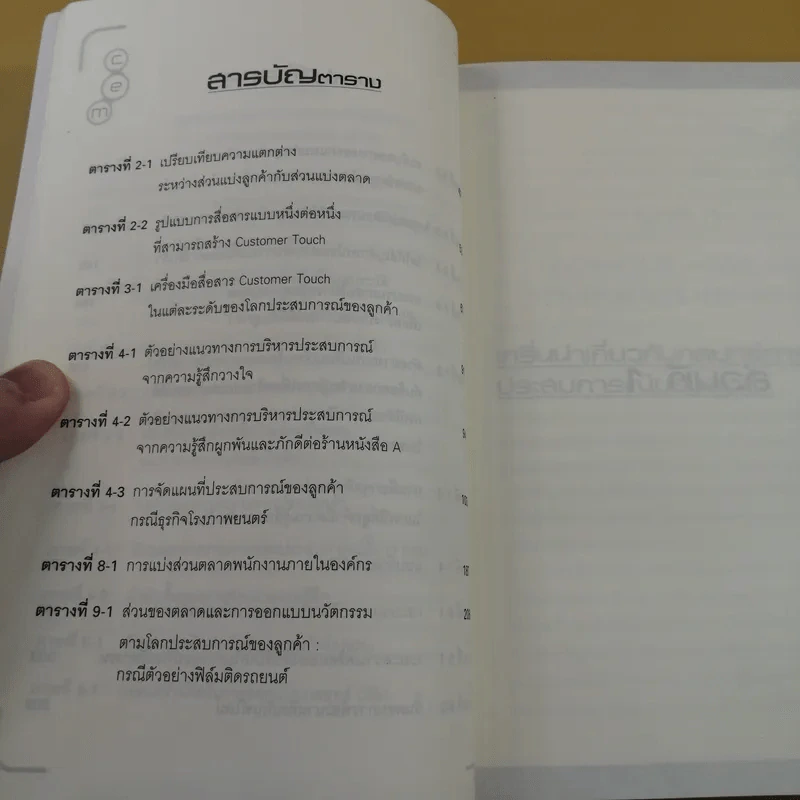 c
e
m
สารบัญตาราง
ตารางที่ 2-1 เปรียบเทียบความแตกต่าง
ระหว่างส่วนแบ่งลูกค้ากับส่วนแบ่งตลาด
ตารางที่ 2-2 รูปแบบการสื่อสารแบบหนึ่งต่อหนึ่ง
ที่สามารถสร้าง Customer Touch
ตารางที่ 3-1 เครื่องมือสื่อสาร Customer Touch
ในแต่ละระดับของโลกประสบการณ์ของลูกค้า
ตารางที่ 4-1 ตัวอย่างแนวทางการบริหารประสบการณ์
จากความรู้สึกวางใจ
ตารางที่ 4-2 ตัวอย่างแนวทางการบริหารประสบการณ์
จากความรู้สึกผูกพันและภักดีต่อร้านหนังสือ A
ตารางที่ 4-3 การจัดแผนที่ประสบการณ์ของลูกค้า
กรณีธุรกิจโรงภาพยนตร์
ตารางที่ 8-1 การแบ่งส่วนตลาดพนักงานภายในองค์กร
ตารางที่ 9-1 ส่วนของตลาดและการออกแบบนวัตกรรม
ตามโลกประสบการณ์ของลูกค้า :
กรณีตัวอย่างฟิล์มติดรถยนต์